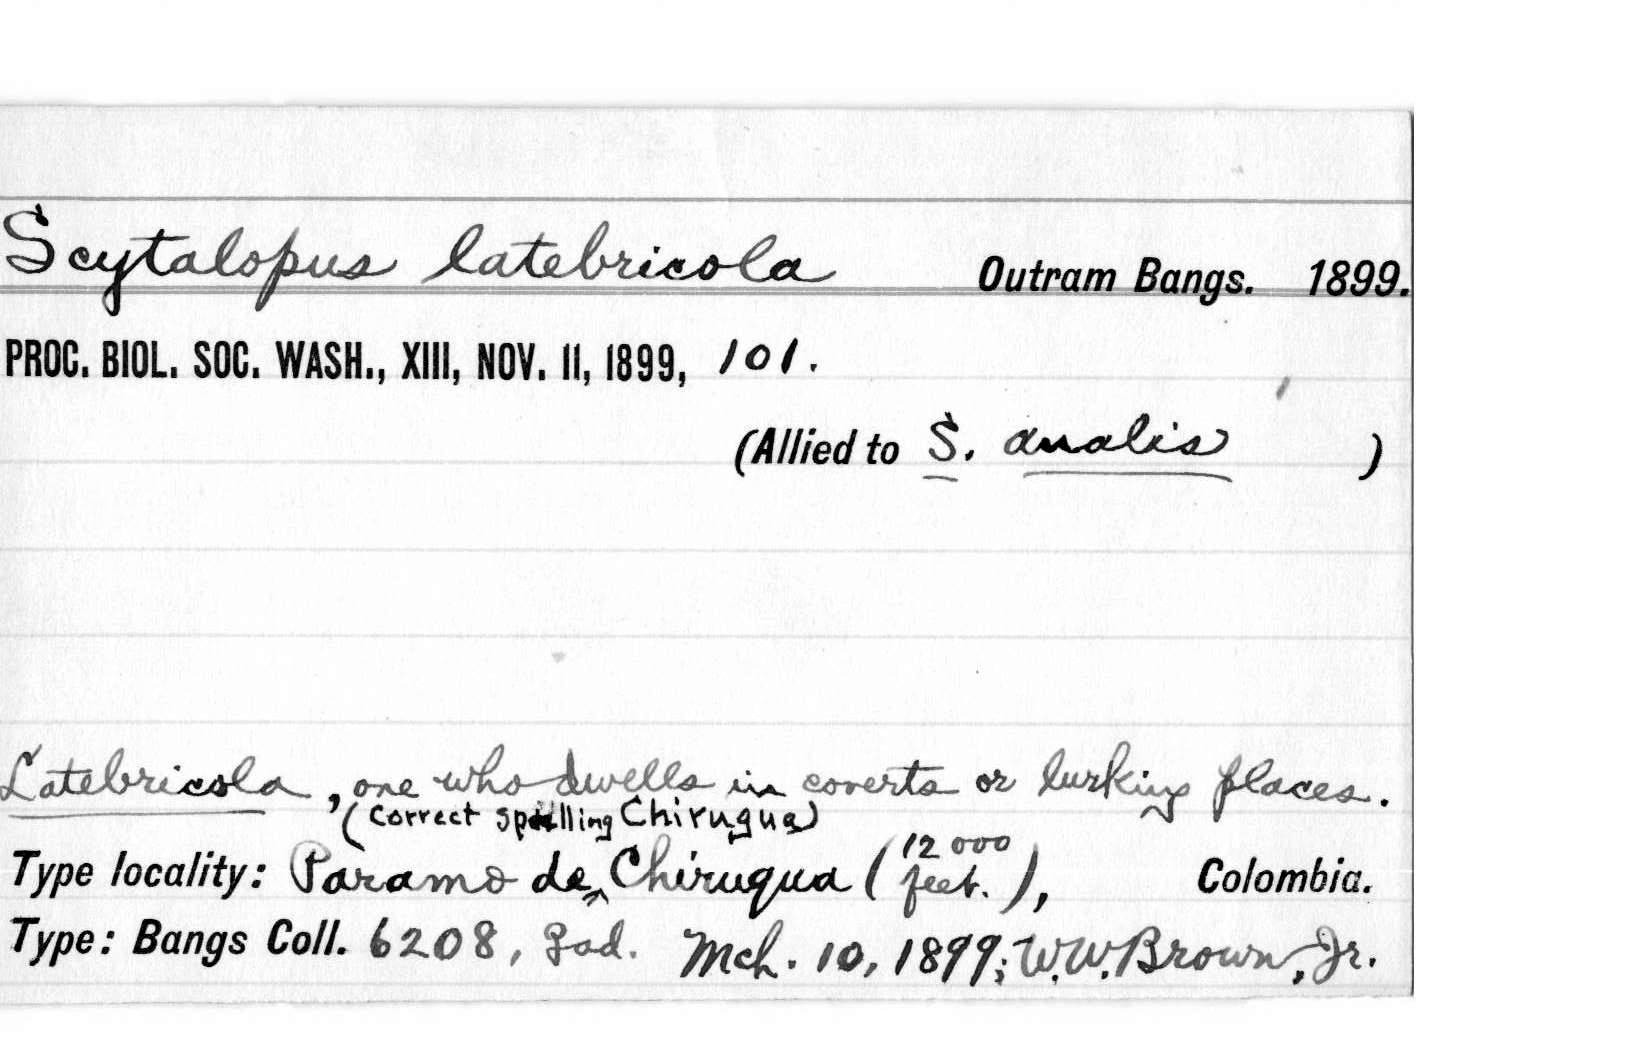 Scytalopus latebricola Outram Bangs. 1899.
PROC. BIOL. SOC. WASH., XIII, NOV. 11, 1899, 101.
(Allied to S. analis )
Latebricola, one who dwells in coverts or lurking places.
(Correct spelling Chirugua)
Type locality: Paramo de Chiruqua (12 000 feet.), Colombia.
Type: Bangs Coll. 6208, ad. Mch. 10, 1899; W.W. Brown, Jr.